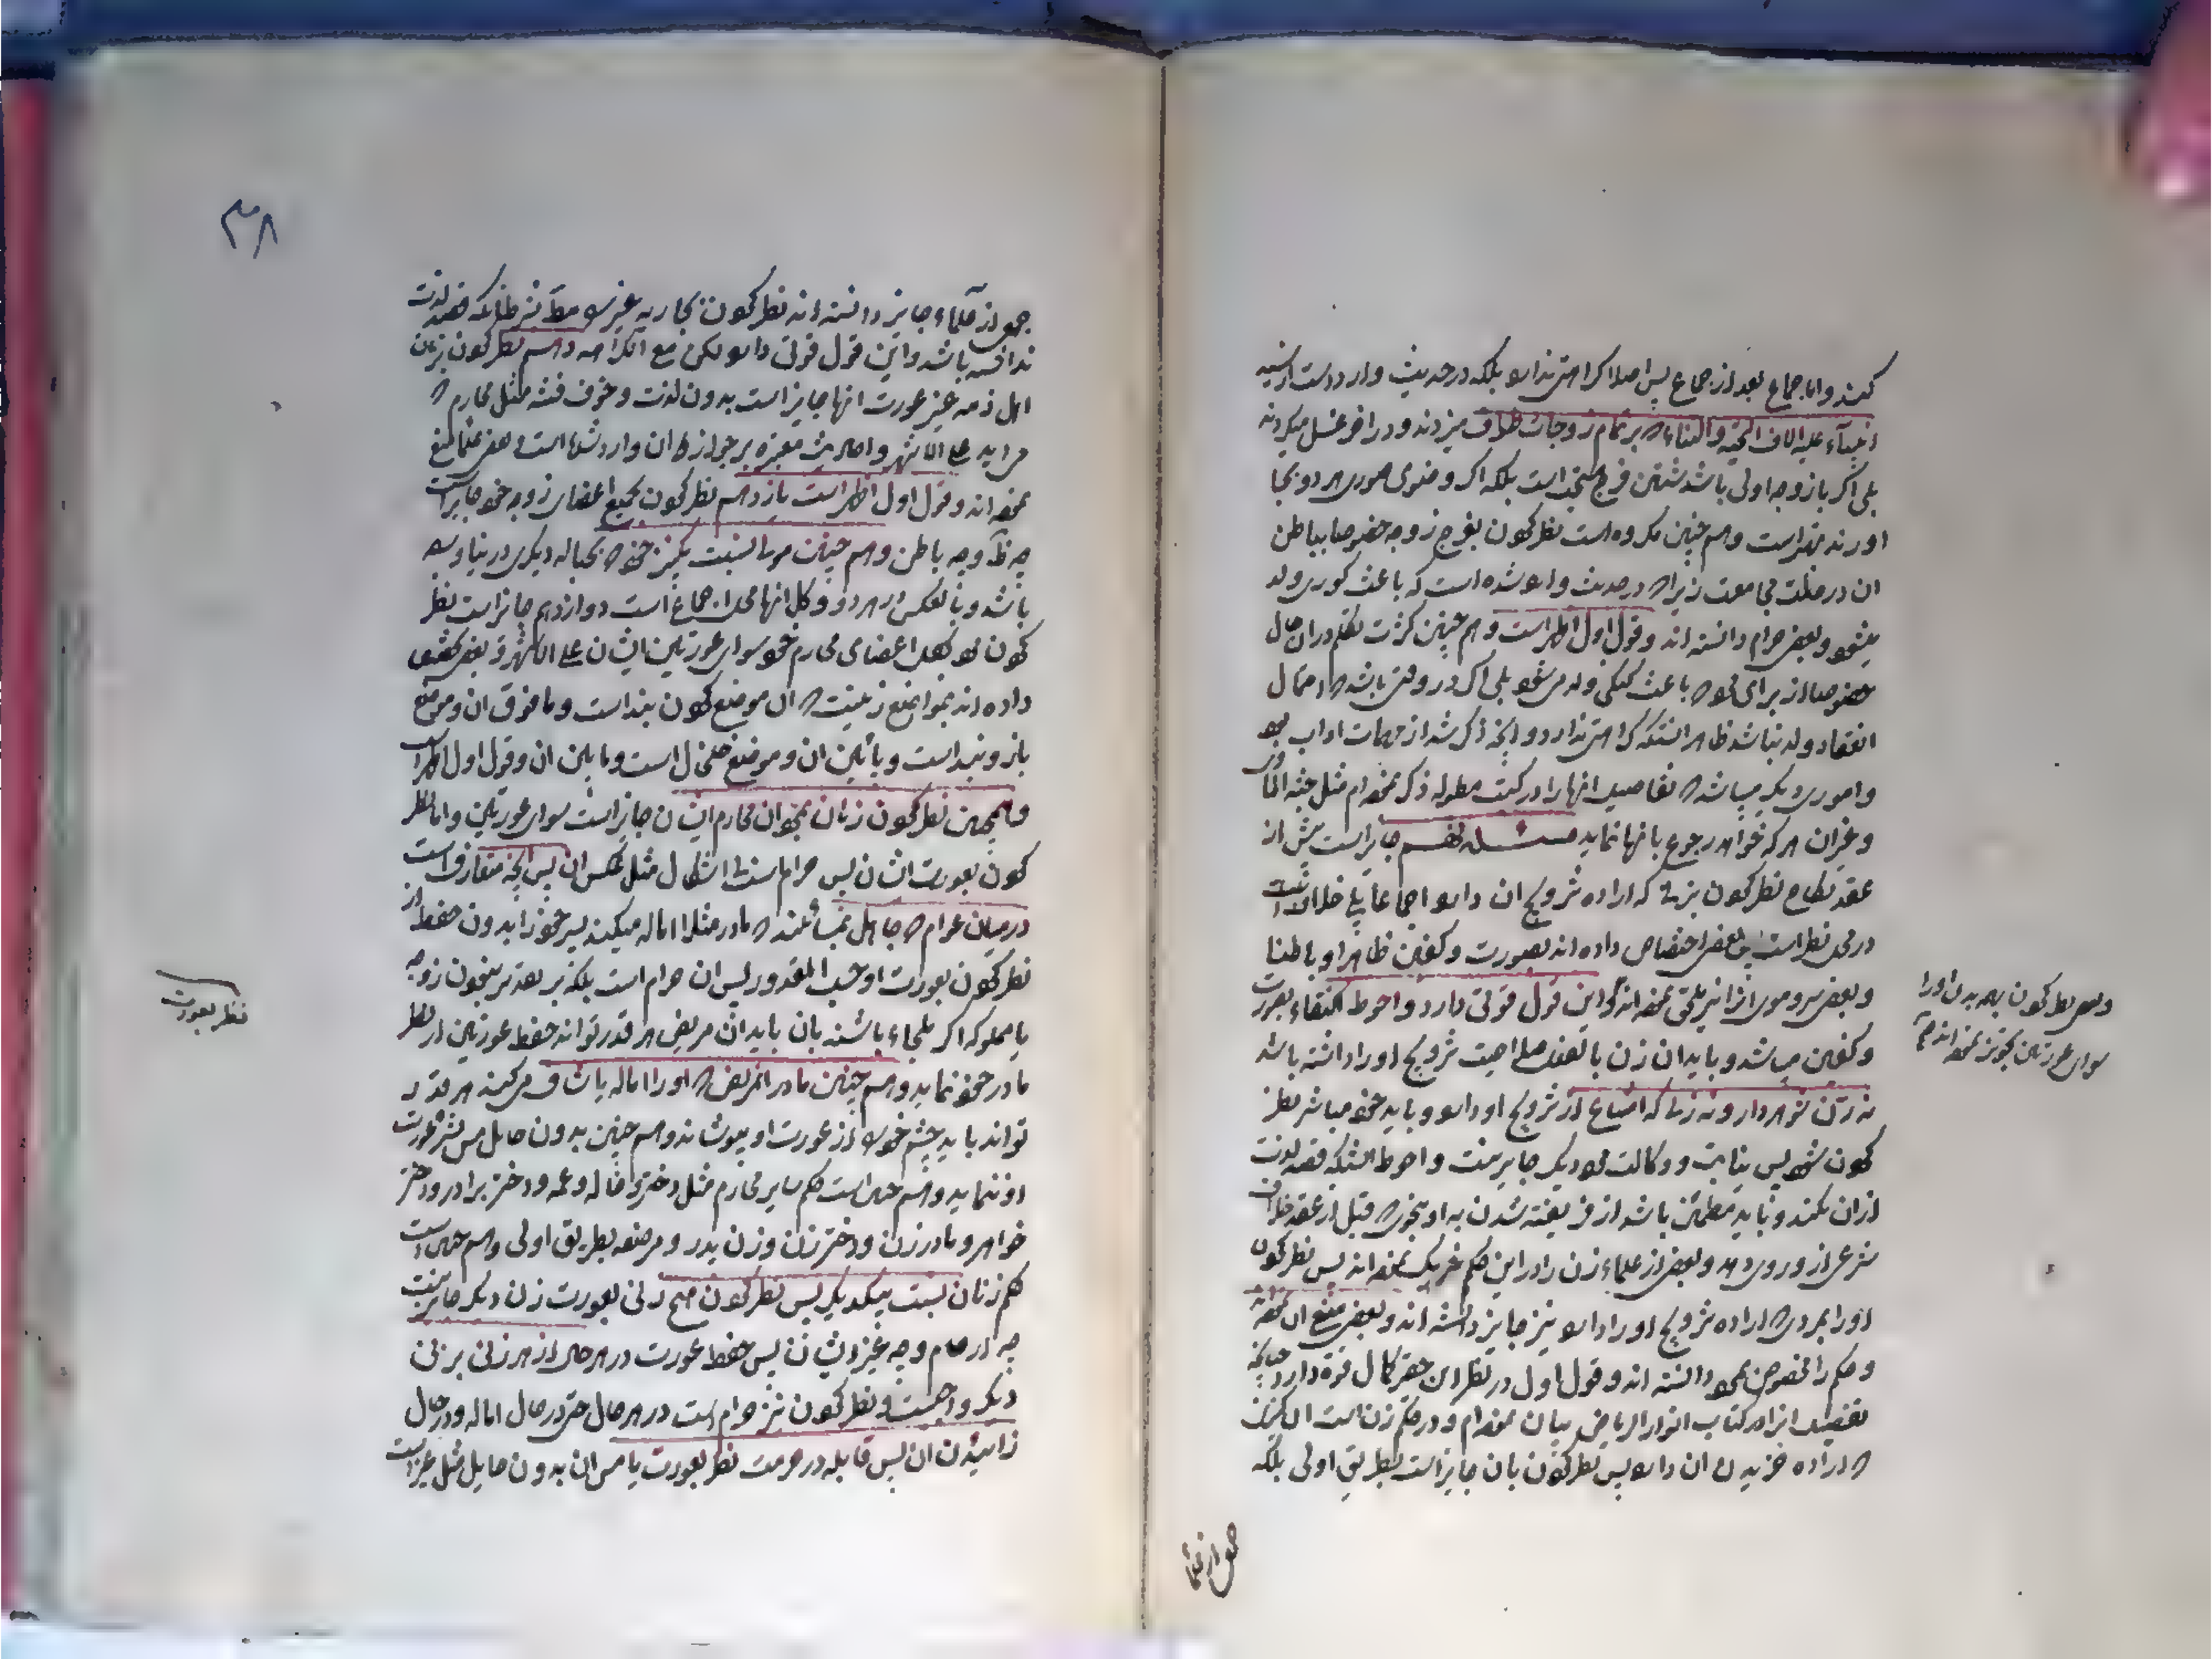 کنند و اما جماع بعد از جماع پس اصلا کراهتی ندارد بلکه در حدیث وارد است که سید
انبیاء علیه الاف التحیة و الثناء که بر تمام زوجات طواف میزدند و در اخر غسل میکردند
بلی اگر با زوجه اولی باشد شستن فرج مستحب است بلکه اگر وضوی صوری هر دو بجا
اورند بهتر است و هم چنین مکروه است نظر کردن بفرج زوجه خصوصا بباطن
ان در حالت مجامعت زیرا که در حدیث وارد شده است که باعث کوری ولد
میشود و بعضی حرام دانسته اند و قول اول اظهر است و هم چنین کثرت تکلم در ان حال
خصوصا از برای مرد که باعث گنگی ولد می شود بلی اگر در وقتی باشد که احتمال
انعقاد ولد نباشد ظاهر انستکه کراهتی ندارد و انچه ذکر شد از مهمات اداب بود
و اموری دیگر میباشد که تفاصیل انها را در کتب مطوله ذکر نموده ام مثل جنة الماوی
و غیر ان هر که خواهد رجوع بانها نماید مسئله نهم جایز است پیش از
عقد نکاح نظر کردن بزنی که اراده تزویج ان دارد اجماعا بلی خلاف ثابت است
در محل نظر است پس بعضی اختصاص داده اند بصورت و کفین ظاهرا و باطنا
و بعضی سر و موی را نیز ملحق نموده اند و این قول قوتی دارد و احوط اکتفاء بصورت
و کفین می باشد و باید ان زن بالفعل صلاحیت تزویج او را داشته باشد
نه زن شوهردار و نه زنی که امتناع از تزویج او دارد و باید خود مباشر نظر
کردن شود پس نیابت و وکالت مرد دیگر جایز نیست و احوط انستکه قصد لذت
از ان نکند و باید مطمئن باشد از فریفته شدن به او بنحوی که قبل از عقد خلاف
شرعی از او روی دهد و بعضی از علماء زن را در این حکم شریک نموده اند پس نظر کردن
او را بمردی که اراده تزویج او را دارد نیز جایز دانسته اند و بعضی منع ان نموده اند
و حکم را مخصوص بمرد دانسته اند و قول اول در نظر این حقیر کمال قوة دارد چنانچه
تفصیل انرا در کتاب انوار الریاض بیان نموده ام و در حکم زن است ان کنیزی
که اراده خریدن ان دارد پس نظر کردن بان جایز است بطریق اولی بلکه
و بعضی نظر کردن بهمه بدن او را
سوای عورتین تجویز نموده اند
جمعی از علما
۳۸
جمعی از علماء جایز دانسته اند نظر کردن بجاریه غیر را مطلقا بشرط انکه قصد لذت
نداشته باشد و این قول قوتی دارد لکن مع الکراهه دهم نظر کردن بزنان
اهل ذمه غیر عورت انها جایز است بدون لذت و خوف فتنه مثل محارم که
می اید علی الاشهر و احادیث معتبره بر جواز ان وارد شده است و بعضی منع
نموده اند و قول اول اظهر است یازدهم نظر کردن بجمیع اعضای زوجه خود جایز است
چه ظاهر و چه باطن و هم چنین مولا نسبت بکنیز خود که بحباله دیگری در نیاورده
باشد و بالعکس در هر دو و کل انها محل اجماع است دوازدهم جایز است نظر
کردن مرد بکل اعضای محارم خود سوای عورتین ایشان علی الاشهر و بعضی تخصیص
داده اند بمواضع زینت که ان موضع گردن بند است و ما فوق ان و موضع
بازو بند است و پائین ان و موضع خلخال است و ما بین ان و قول اول اظهر است
و همچنین نظر کردن زنان بمردان محارم ایشان جایز است سوای عورتین و اما نظر
کردن بعورت ایشان پس حرام است بی اشکال مثل عکس ان پس انچه متعارف است
در میان عوام که جاهل بمسائلند که مادر مثلا اماله میکند پسر خود را بدون حفظ از
نظر کردن بعورت او حسب المقدور پس ان حرام است بلکه بر تقدیر نبودن زوجه
یا مملوکه اگر ملجاء باشند بان باید ان مریض هر قدر تواند حفظ عورتین از نظر
مادر خود نماید و هم چنین مادر ان مریض که او را اماله یا شاف می کند هر قدر
تواند باید چشم خود را از عورت او بپوشاند و هم چنین بدون حایل مس بشره عورت
او ننماید و هم چنین است حکم سایر محارم مثل دختر و خاله و عمه و دختر برادر و دختر
خواهر و مادر زن و دختر زن و زن پدر و مرضعه بطریق اولی و هم چنین است
حکم زنان نسبت بیکدیگر پس نظر کردن هیچ زنی بعورت زن دیگر جایز نیست
چه ارحام و چه غیر ایشان پس حفظ عورت در هر حال از هر زنی بر زنی
دیگر واجبست و نظر کردن نیز حرام است در هر حال حتی در حال اماله و در حال
زائیدن ان پس قابله در حرمت نظر بعورت یا مس ان بدون حایل مثل غیر است
نظر بعورت